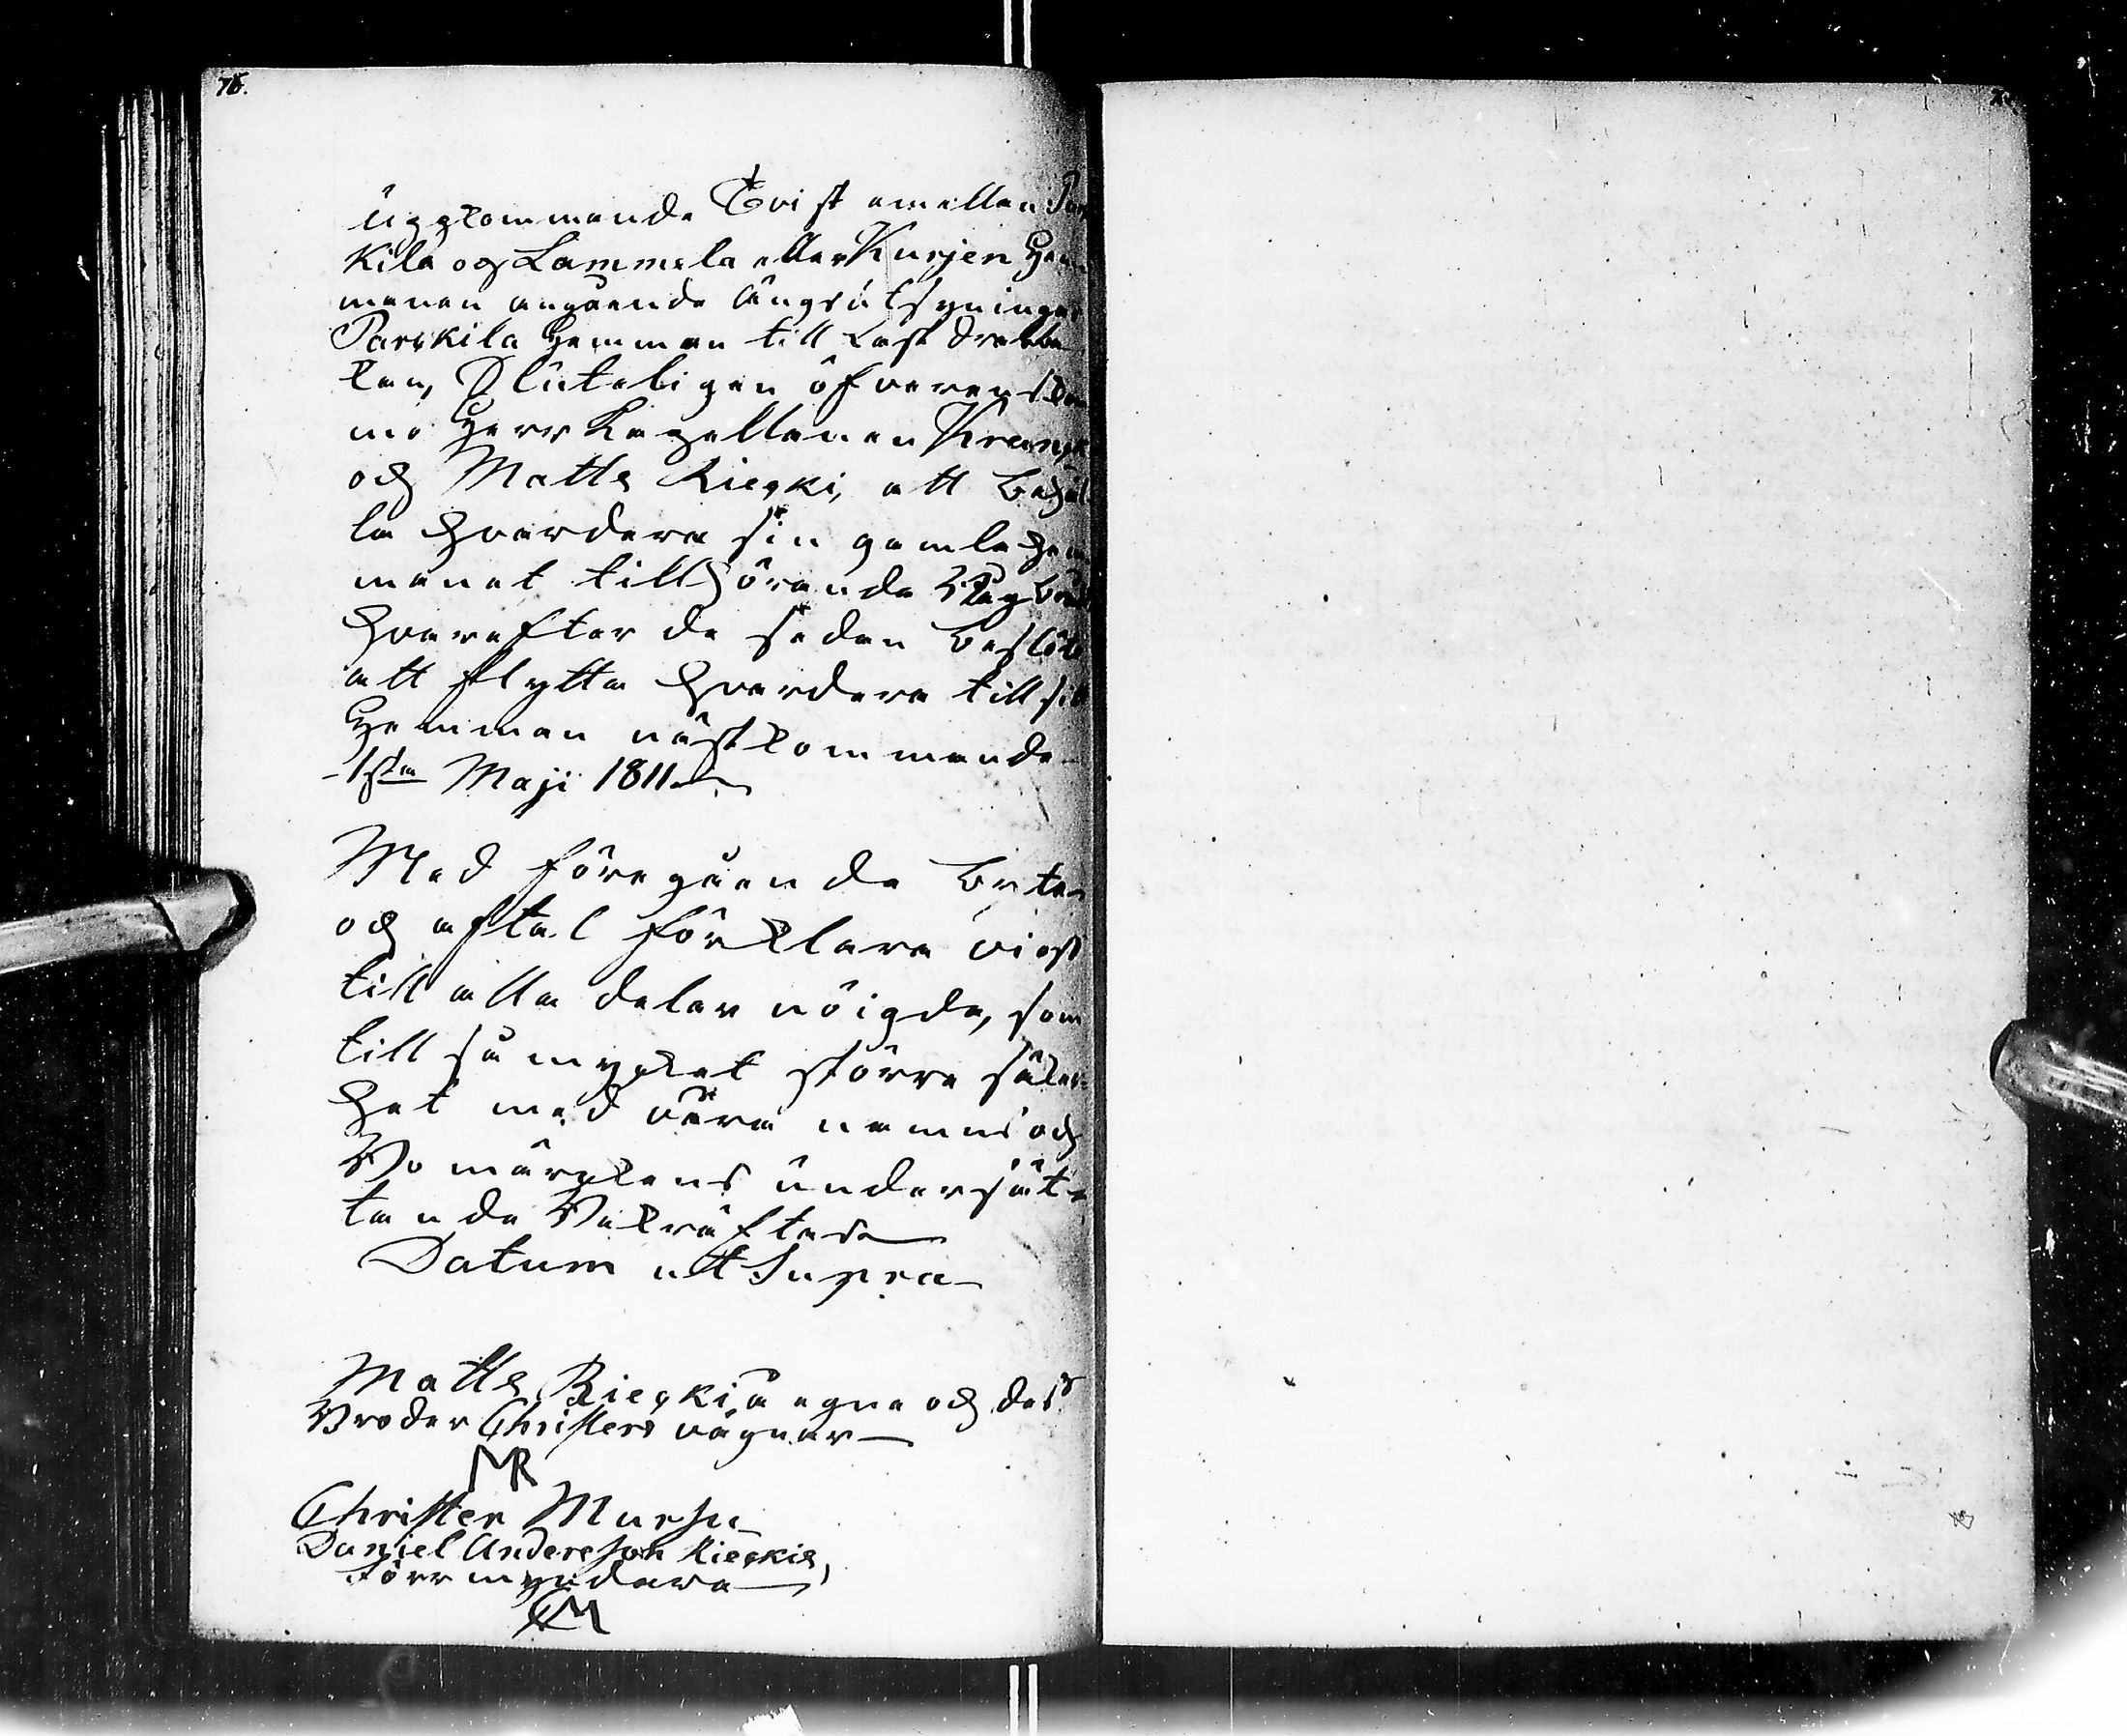 76.
uppkommande Tvist emellan Pars
kila och Lammela eller Kurjen Hem
manen angående ängsutsyningar
Parskila Hemman till Last drabba
kan, Sluteligen öfverenskom
mo Herr Kapellanen Kranck
och Matts Rieski, att behål
la hvardera sin gamle Hem
manet tillhörande Byggnad
hvarefter de sedan beslöto
att flytta hvardera till sitt
Hemman nästkommande
1sta Maji 1811
Med föregående byte
och aftal förklara vi oss
till alla delar nöigde, som
till så mycket större säker
het med våra namns och
Bomärkens undersät
tande Bekräftas
Datum utt Supra
Matts Rieski, å egne och dess
Broder Christers vägnar
MR
Christer Mursu
Daniel Andersson Rieskis,
förrmyndare
CM